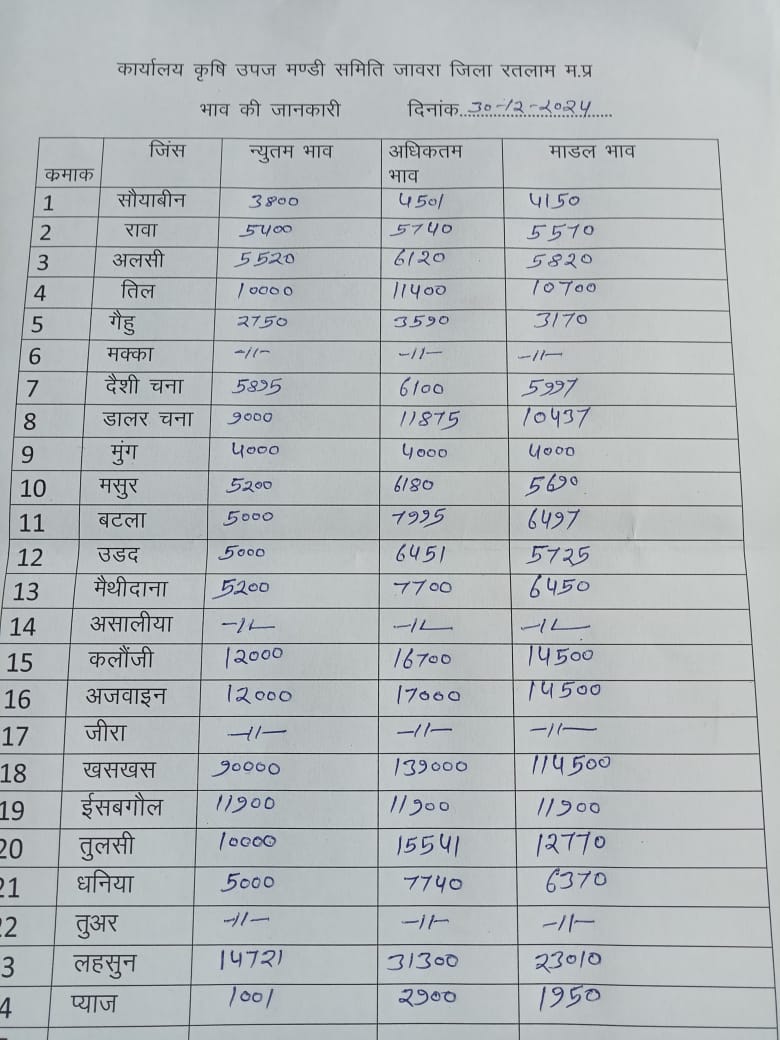 कार्यालय कृषि उपज मण्डी समिति जावरा जिला रतलाम म.प्र
भाव की जानकारी दिनांक..30-12-2024......
कमाक जिंस न्युतम भाव अधिकतम भाव माडल भाव
1 सौयाबीन 3800 4501 4150
2 रावा 5400 5740 5570
3 अलसी 5520 6120 5820
4 तिल 10000 11400 10700
5 गैहु 2750 3590 3170
6 मक्का -11- -11- -11-
7 दैशी चना 5895 6100 5997
8 डालर चना 9000 11875 10437
9 मुंग 4000 4000 4000
10 मसुर 5200 6180 5690
11 बटला 5000 7995 6497
12 उडद 5000 6451 5725
13 मैथीदाना 5200 7700 6450
14 असालीया -11- -11- -11-
15 कलौंजी 12000 16700 14500
16 अजवाइन 12000 17000 14500
17 जीरा -11- -11- -11-
18 खसखस 90000 139000 114500
19 ईसबगौल 11900 11900 11900
20 तुलसी 10000 15541 12770
21 धनिया 5000 7740 6370
22 तुअर -11- -11- -11-
3 लहसुन 14721 31300 23010
4 प्याज 1001 2900 1950